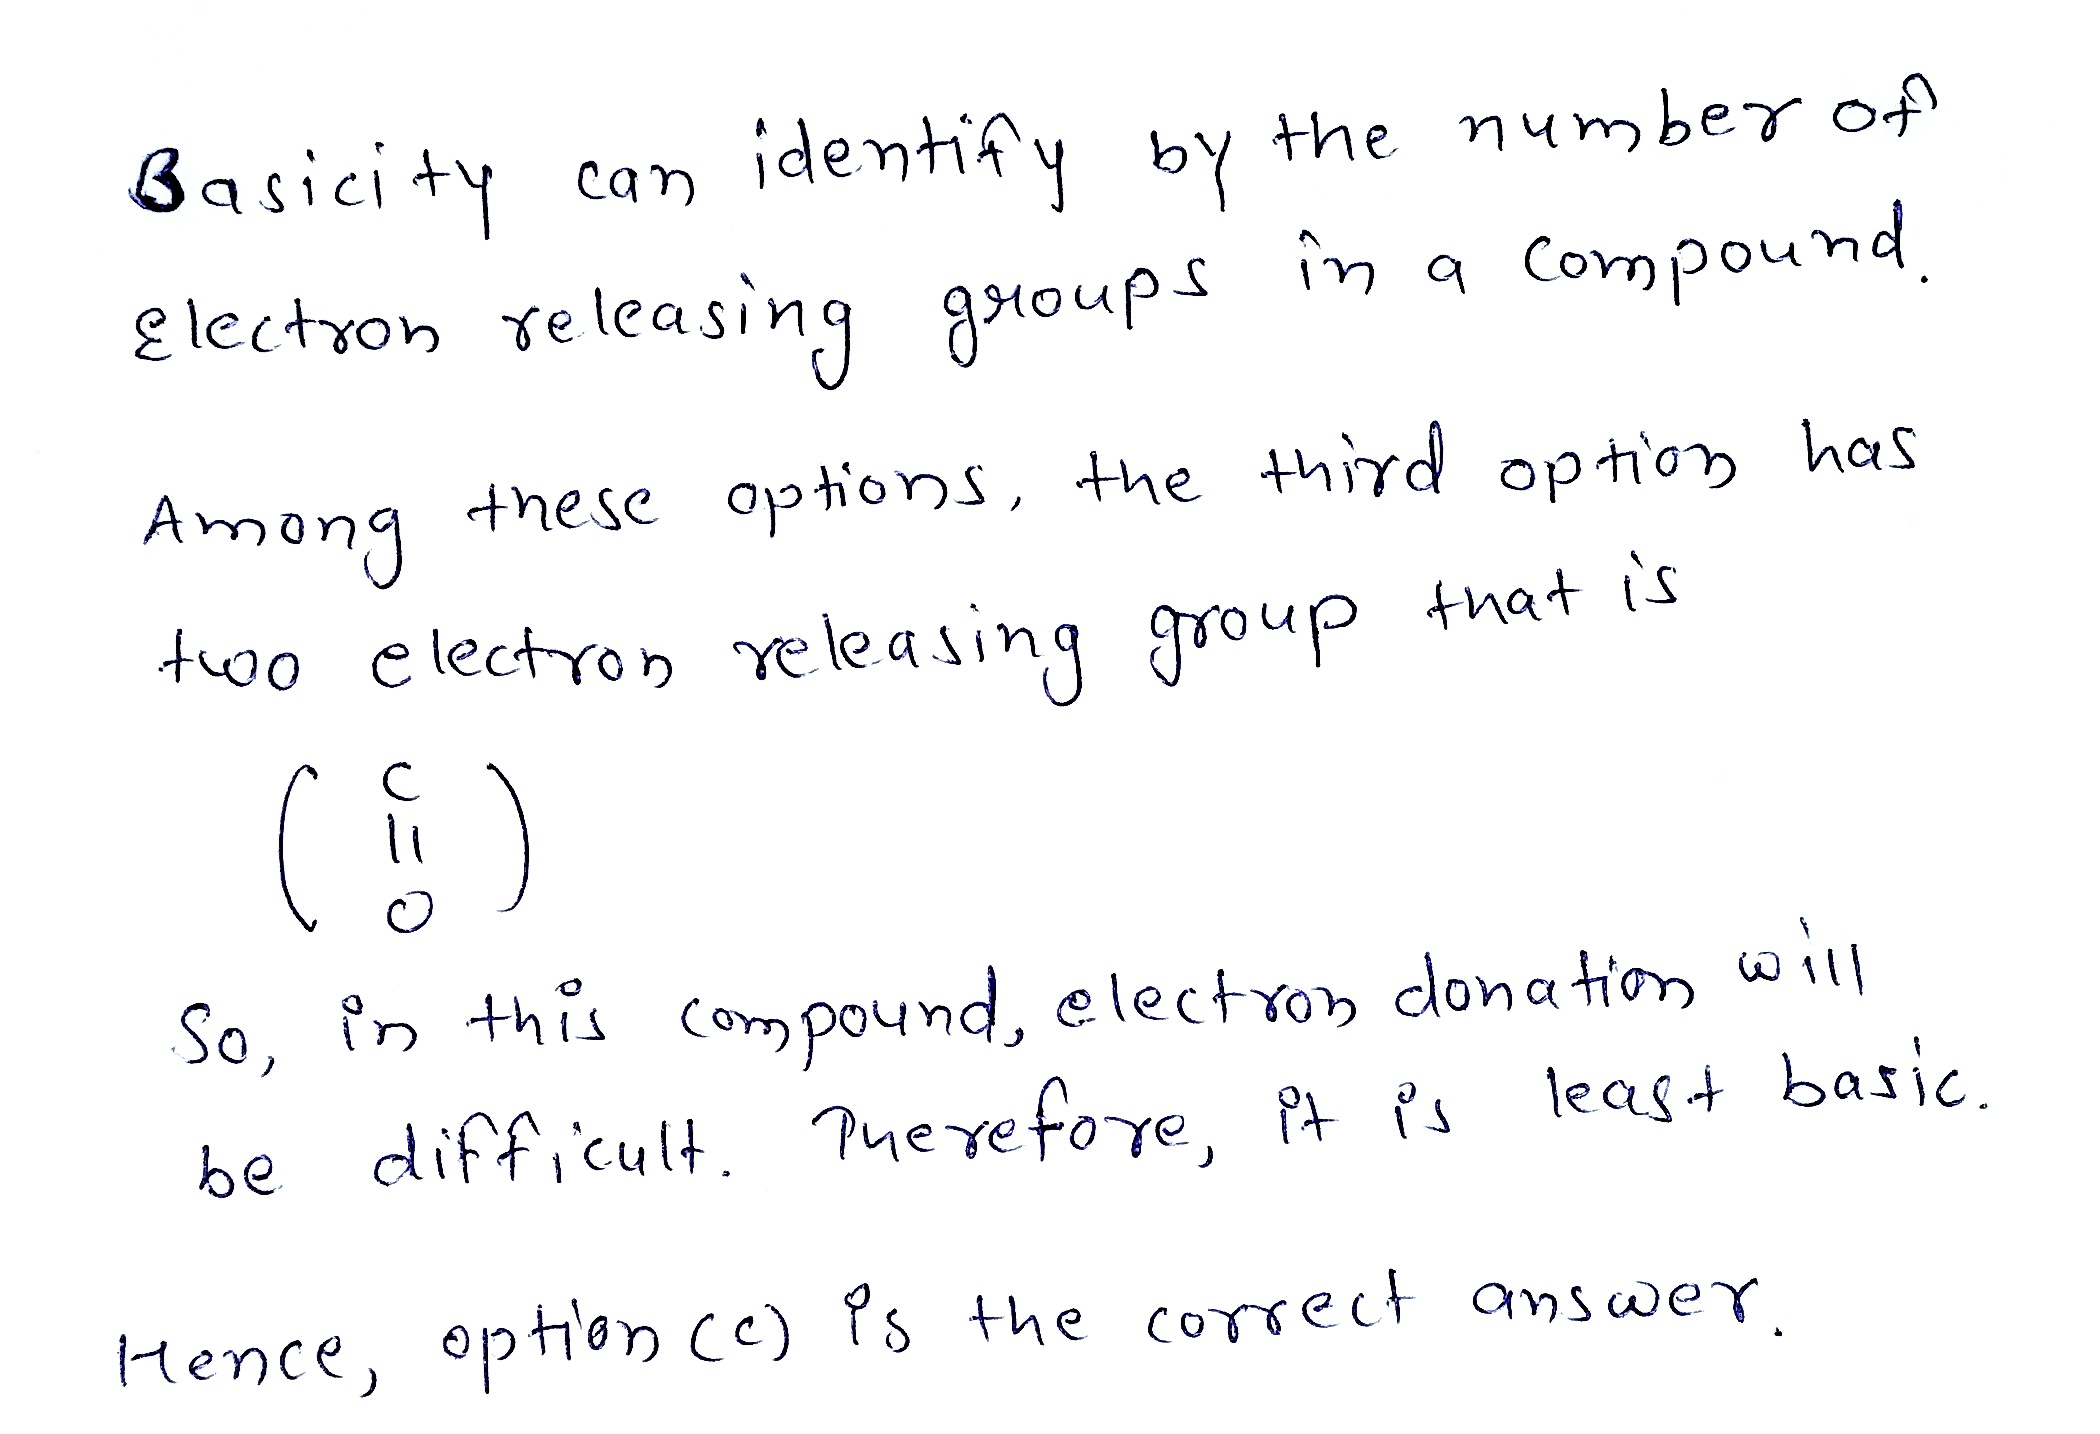 Basicity can identify by the number of
electron releasing groups in a compound.
Among these options, the third option has
two electron releasing group that is
( C
||
O )
So, in this compound, electron donation will
be difficult. Therefore, it is least basic.
Hence, option (c) is the correct answer.